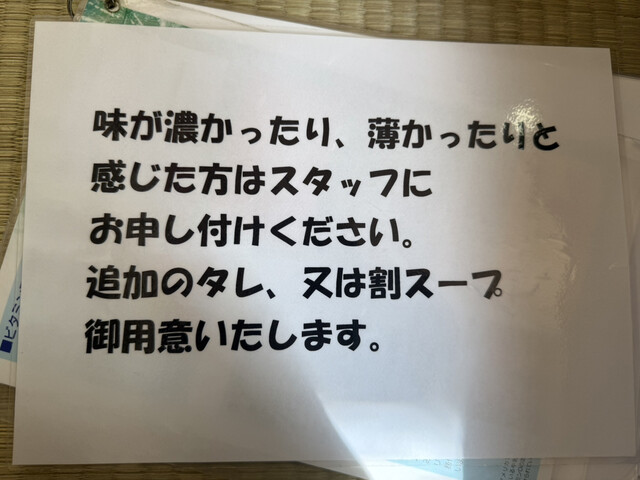 味が濃かったり、薄かったりと
感じた方はスタッフに
お申し付けください。
追加のタレ、又は割スープ
御用意いたします。